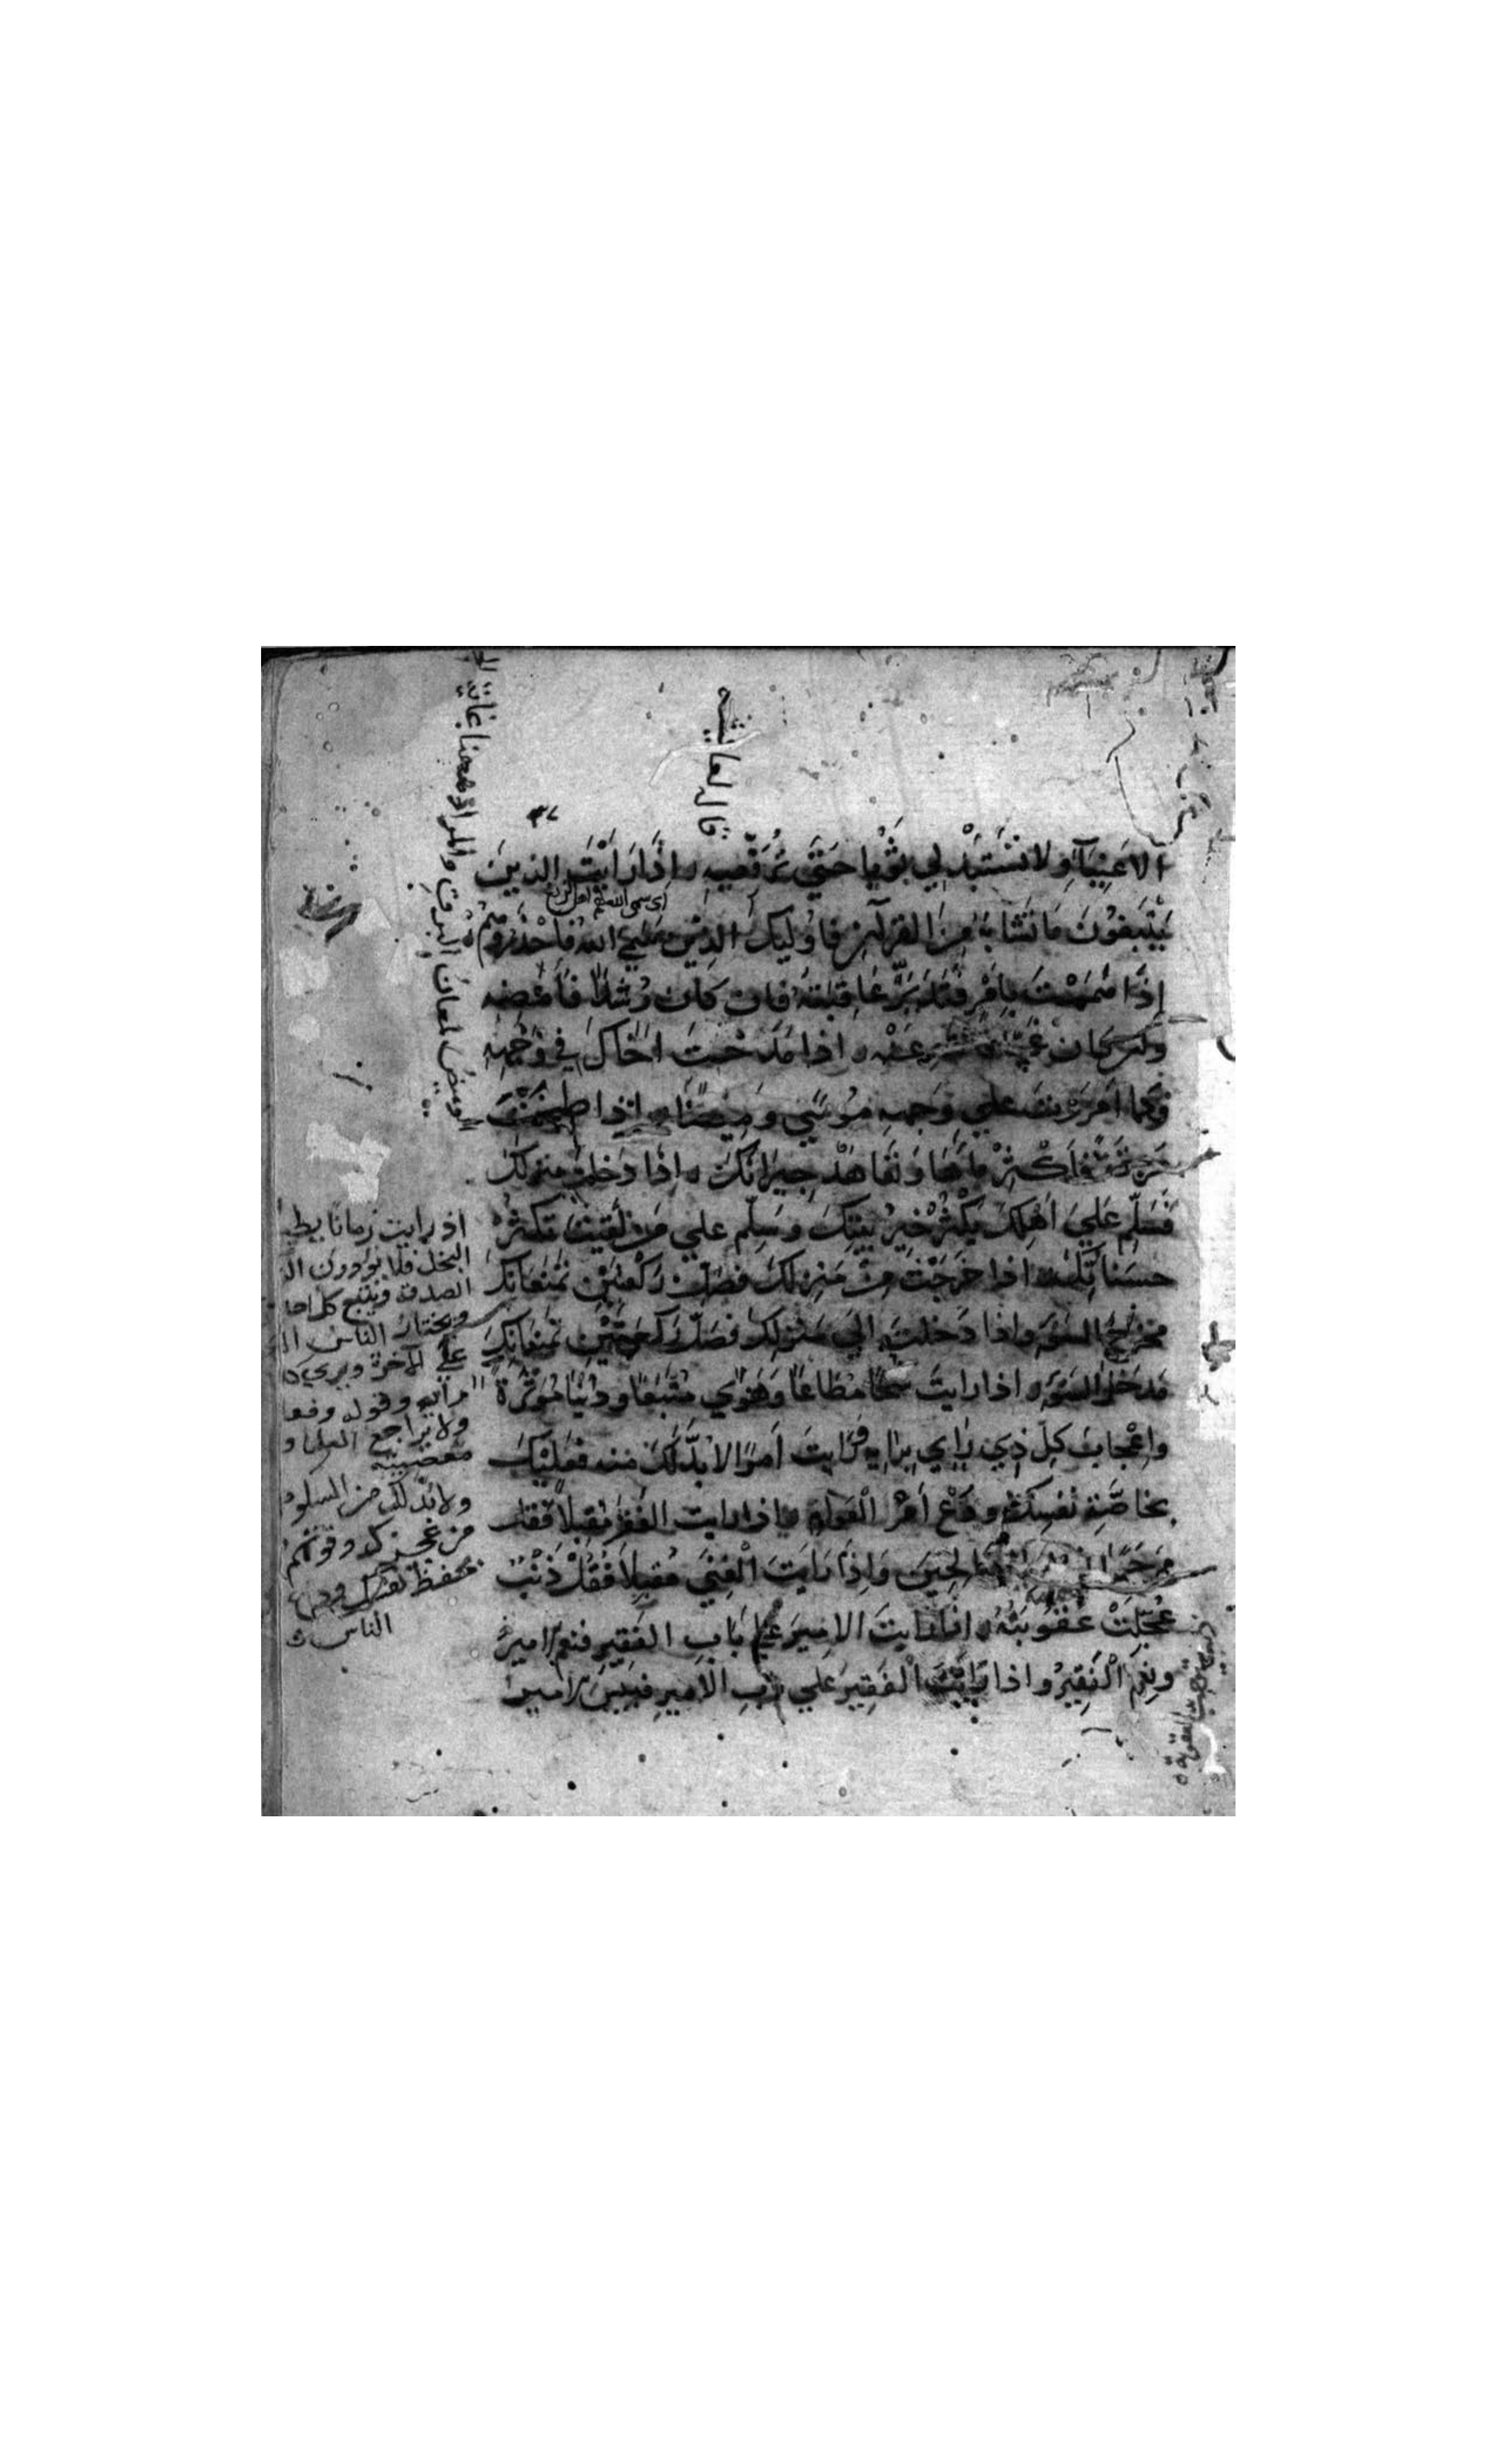 قال لعائشه
الاغنياء ولا تستبدلي ثوبا حتي ترقعيه اذا رايت الذين
يتبعون ما تشابه من القرآن فاوليك الذين سمي الله فاحذروهم
اذا هممت بامر فتدبر عاقبته فان كان رشدا فامضه
وان كان غيا فانته عنه اذا مدحت اخاك في وجهه
فكانما امررت علي وجهه موسي وميضا اذا طبخت
مرقة فاكثر ماءها وتعاهد جيرانك اذا دخلت منزلك
فسلم علي اهلك يكثر خير بيتك وسلم علي من لقيت تكثر
حسناتك اذا خرجت من منزلك فصل ركعتين تمنعانك
مخرج السوء واذا دخلت الي منزلك فصل ركعتين تمنعانك
مدخل السوء اذا رايت شحا مطاعا وهوي متبعا ودنيا موثرة
واعجاب كل ذي راي برايه ورايت امرا لا بد لك منه فعليك
بخاصة نفسك ودع امر العوام اذا رايت الفقر مقبلا فقل
مرحبا بشعار الصالحين واذا رايت الغني مقبلا فقل ذنب
عجلت عقوبته اذا رايت الامير علي باب الفقير فنعم الامير
ونعم الفقير واذا رايت الفقير علي باب الامير فبيس الامير
الوميض لمعان البرق والمراد ههنا غاية
اذ رايت زمانا يط
البخل فلا يودون ال
الصدقة ويتبع كل احد
ويختار الناس ال
علي الاخرة ويري ك
رايه وقوله وفعا
ولا يراجع العلما و
معصيته
ولا بد لك من السلو
الناس